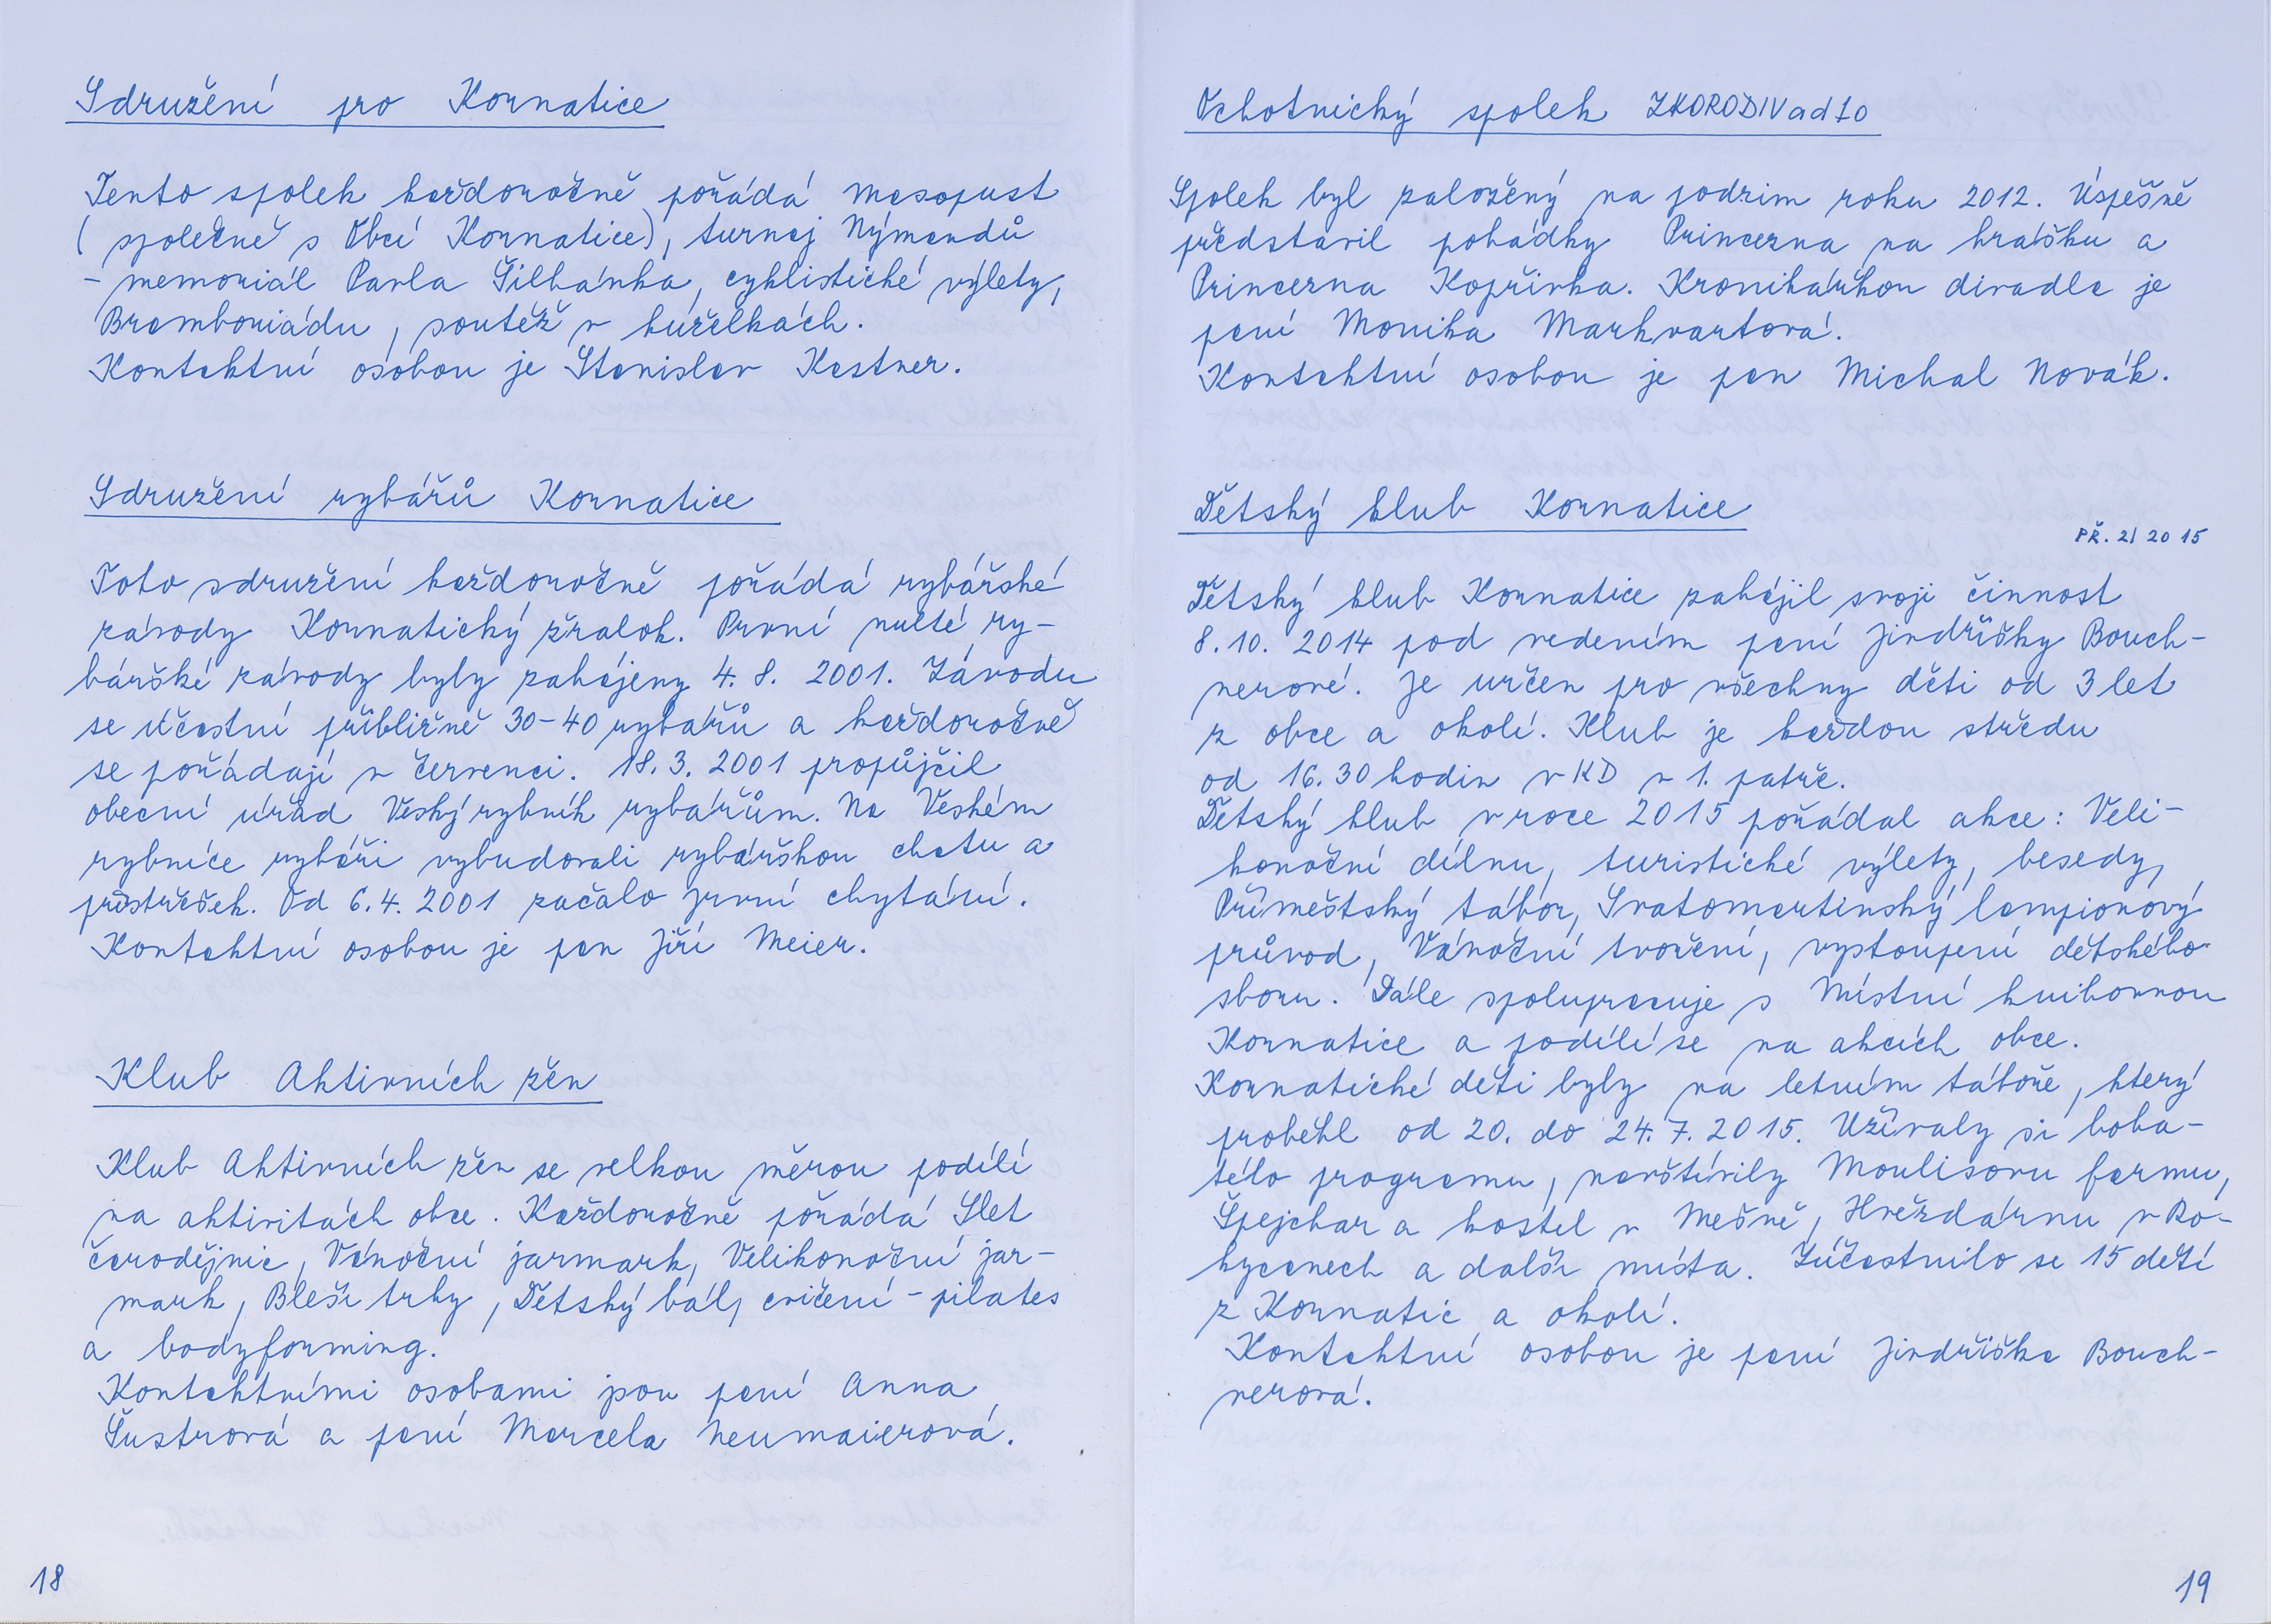 Sdružení pro Kornatice
Tento spolek každoročně pořádá masopust
(společně s Obcí Kornatice), turnaj Nýmandů
- memoriál Pavla Šilhánka, cyklistické výlety,
Bramboriádu, soutěž v kuželkách.
Kontaktní osobou je Stanislav Kastner.
Sdružení rybářů Kornatice
Toto sdružení každoročně pořádá rybářské
závody Kornatický žralok. První nulté ry-
bářské závody byly zahájeny 4. 8. 2001. Závodu
se účastní přibližně 30-40 rybářů a každoročně
se pořádají v červenci. 18. 3. 2001 propůjčil
obecní úřad Veský rybník rybářům. Na Veském
rybníce rybáři vybudovali rybářskou chatu a
přístřešek. Od 6. 4. 2001 začalo první chytání.
Kontaktní osobou je pan Jiří Meier.
Klub Aktivních žen
Klub Aktivních žen se velkou měrou podílí
na aktivitách obce. Každoročně pořádá Slet
čarodějnic, Vánoční jarmark, Velikonoční jar-
mark, Bleší trhy, Dětský bál, cvičení - pilates
a bodyforming.
Kontaktními osobami jsou paní Anna
Šustrová a paní Marcela Neumaierová.
18
Ochotnický spolek ZKORODIVadlo
Spolek byl založený na podzim roku 2012. Úspěšně
představil pohádky Princezna na hrášku a
Princezna Kopřivka. Kronikářkou divadla je
paní Monika Markvartová.
Kontaktní osobou je pan Michal Novák.
Dětský klub Kornatice
PŘ. 2/2015
Dětský klub Kornatice zahájil svoji činnost
8. 10. 2014 pod vedením paní Jindřišky Bouch-
nerové. Je určen pro všechny děti od 3 let
z obce a okolí. Klub je každou středu
od 16.30 hodin v KD v 1. patře.
Dětský klub v roce 2015 pořádal akce: Veli-
konoční dílnu, turistické výlety, besedy,
Příměstský tábor, Svatomartinský lampionový
průvod, Vánoční tvoření, vystoupení dětského
sboru. Dále spolupracuje s Místní knihovnou
Kornatice a podílí se na akcích obce.
Kornatické děti byly na letním táboře, který
proběhl od 20. do 24. 7. 2015. Užívaly si boha-
tého programu, navštívily Moulisovu farmu,
Špejchar a kostel v Mešně, Hvězdárnu v Ro-
kycanech a další místa. Zúčastnilo se 15 dětí
z Kornatic a okolí.
Kontaktní osobou je paní Jindřiška Bouch-
nerová.
19